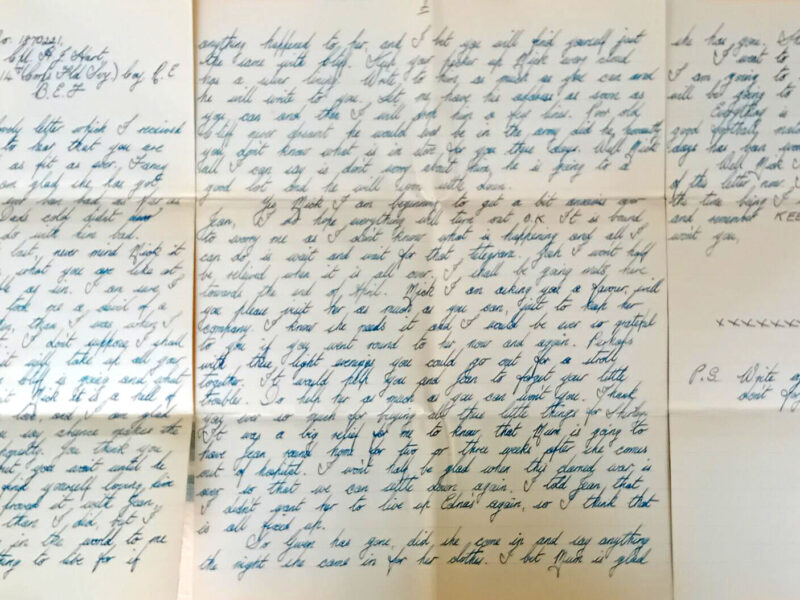 No. 1870221.
Cpl. A. E. Hart
14th (Corps Fld Svy) Coy. R.E
B.E.F
lovely letter which I received
to hear that you are
as fit as ever. Fancy
glad she has got
ever ban bad, as far as
Dads cold didnt
do with him bad.
last, never mind Mick it
what you are like at
as sin. I am sure I
took me a devil of a
than I was when I
I dont suppose I shall
it will take up all your
is going and what
Mick it is a hell of
and I am glad
say absence makes the
honestly. You think you
but you wait until he
find yourself loving him
proved it with Jean,
than I did, but I
in the world to me
thing to live for if
anything happened to her, and I bet you will find yourself just
the same with Philip. Keep your pecker up Mick every cloud
has a silver lining. Write to him, as much as you can and
he will write to you. Let me have his address as soon as
you can and then I will drop him a few lines. Poor old
Philip never dreamt he would ever be in the army did he, honestly
you don't know what is in store for you these days. Well Mick
all I can say is don't worry about him, he is going to a
good lot and he will soon settle down.
Yes Mick I am beginning to get a bit anxious over
Jean, I do hope everything will turn out O.K. It is bound
to worry me as I dont know what is happening and all I
can do is wait and wait for that telegram. Gosh I wont half
be relieved when it is all over. I shall be going
towards the end of April. Mick I am asking you a favour, will
you please visit her as much as you can, just to keep her
company. I know she needs it and I would be ever so grateful
to you if you went round to her now and again. Perhaps
with these light evenings you could go out for a stroll
together. It would help you and Jean to forget your little
troubles. Do help her as much as you can wont you. Thank
you ever so much for buying all those little things for Shirley.
It was a big relief for me to know, that Mum is going to
have Jean round home for two or three weeks after she comes
out of hospital. I won't half be glad when this damned war is
over so that we can settle down again. I told Jean, that
I didn't want her to live up Edna's again, so I think that
is all fixed up.
So Gwen has gone, did she come in and say anything
the night she came in for her clothes. I bet Mum is glad
she has gone.
I want to
I am going to
will be going to
Everything is
good football
days has ban
Well Mick I
of this letter now
the time being I
and remember KEE
wont you,
x x x x x x x
P.S. Write
dont